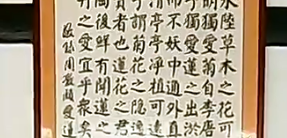 水陸草木之花可
明獨愛菊自李唐
予獨愛蓮之出淤
而不妖中通外直
清亭亭淨植可遠
予謂菊花之隱
貴者也蓮花之君
陶後鮮有聞蓮之
丹之愛宜乎眾矣
敬錄周敦頤愛蓮